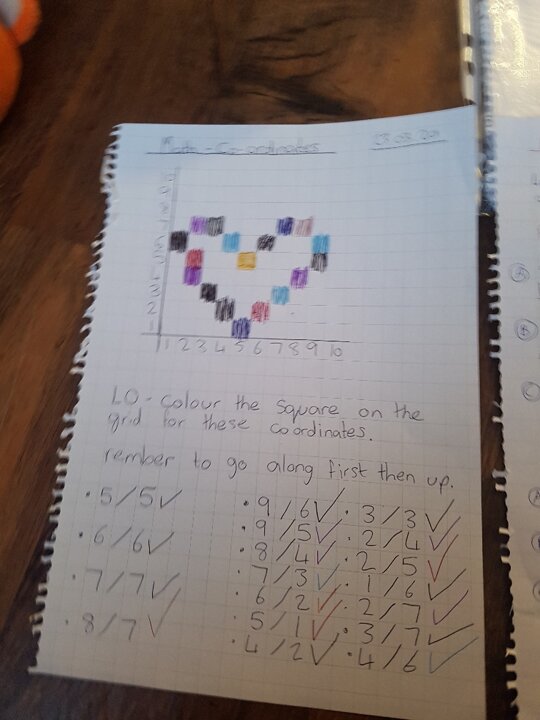 Math - Co-ordinates
1 2 3 4 5 6 7 8 9 10
LO - Colour the square on the
grid for these coordinates.
rember to go along first then up.
• 5/5 ✓
• 6/6 ✓
• 7/7 ✓
• 8/7 ✓
• 9/6 ✓
• 9/5 ✓
• 8/4 ✓
• 7/3 ✓
• 6/2 ✓
• 5/1 ✓
• 4/2 ✓
• 3/3 ✓
• 2/4 ✓
• 2/5 ✓
• 1/6 ✓
• 2/7 ✓
• 3/7 ✓
• 4/6 ✓